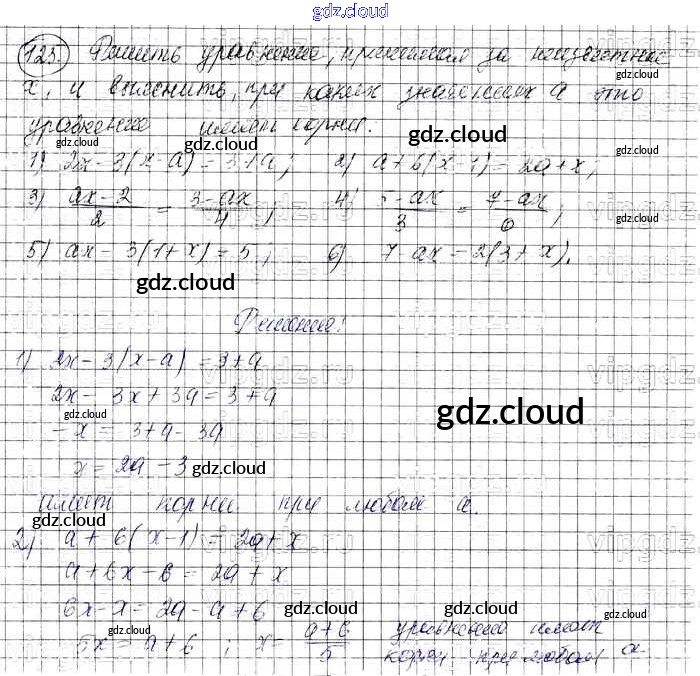 gdz.cloud
123. Решить уравнение, принимая за неизвестное
x, и выяснить, при каких значениях a это
gdz.cloud
уравнение имеет корни.
gdz.cloud
1) 2x - 3(x - a) = 3 + a; 2) a + 6(x - 1) = 2a + x;
gdz.cloud gdz.cloud
3) (ax - 2)/2 = (3 - ax)/4; 4) (5 - ax)/3 = (7 - ax)/6;
5) ax - 3(1 + x) = 5; 6) 7 ax = 2(3 + x).
gdz.cloud gdz.cloud
Решение:
vipgdz.ru
1) 2x - 3(x - a) = 3 + a
gdz.cloud
2x - 3x + 3a = 3 + a
gdz.cloud gdz.cloud
-x = 3 + a - 3a
x = 2a - 3 gdz.cloud
имеет корни при любом a.
gdz.cloud gdz.cloud
2) a + 6(x - 1) = 2a + x
a + 6x - 6 = 2a + x
gdz.cloud
6x - x = 2a - a + 6 gdz.cloud gdz.cloud
5x = a + 6; x = (a + 6)/5 уравнение имеет
gdz.cloud корни при любом a
gdz.cloud